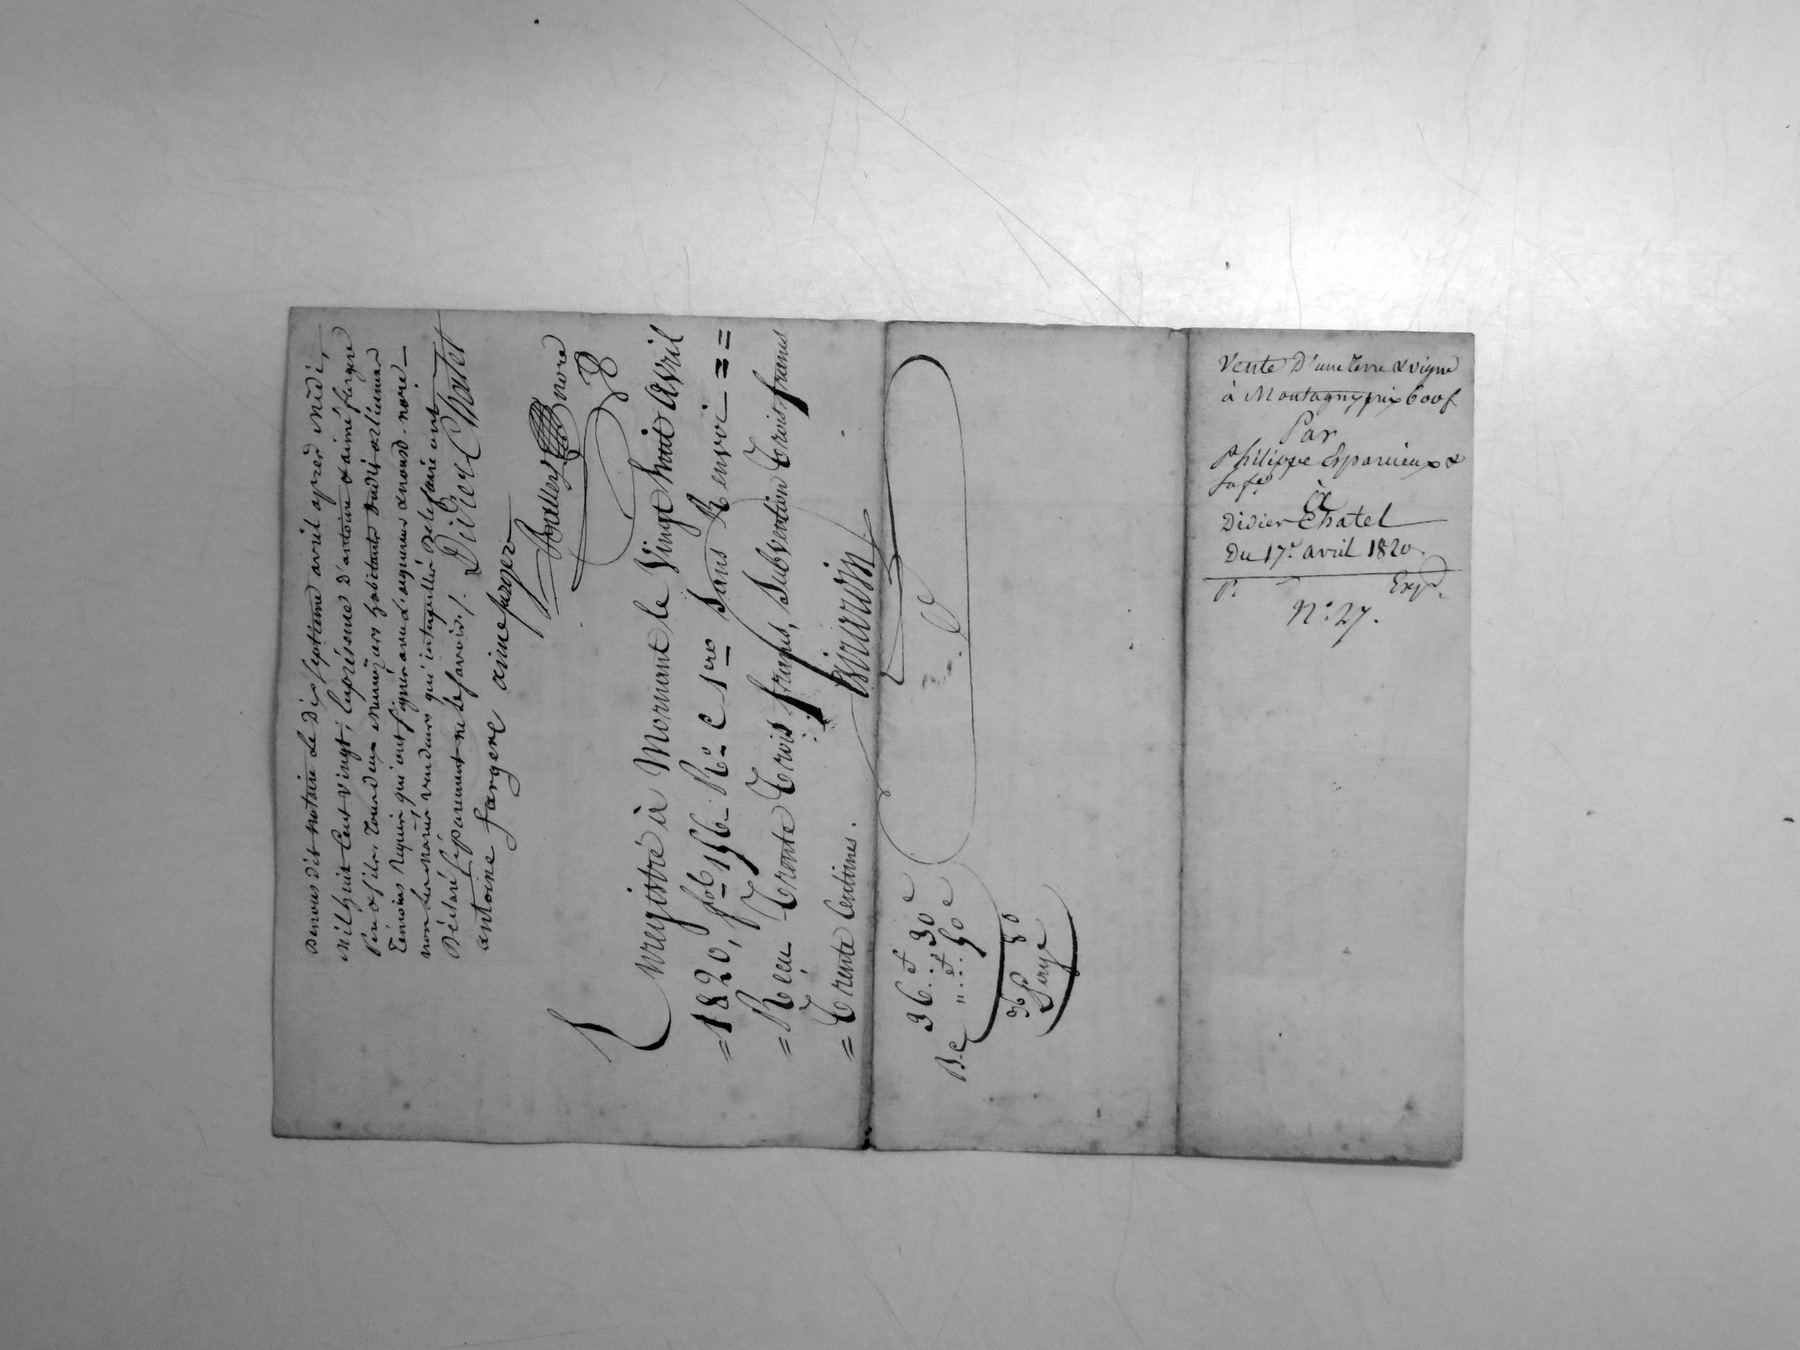 Devant dit notaire Le Dix septieme avril apres Midi,
Mil huit Cent vingt, En présence d'antoine & aimé fargere
Père & fils, Tous deux habitants dudit orlienas
Témoins Requis qui ont signé avec L'acquereur & nous d. nore
non Les mariés vendeurs qui interpellés de le faire ont
Déclaré séparément ne Le savoir /. Didier Chatel
antoine fargere aime farger
nore
Enregistré à Mornant le Vingt huit avril
= 1820, fol 156 Ro C 1ere Sans Renvoi = =
= Reçu Trente Trois francs, Subvention Trois francs
= Trente Centimes.
Girardin
36 f 30 c
" f 50 c
36 80
Vente D'une terre & vigne
à Montagny prix 600f
Par
Philippe Esparcieux &
sa fe
à
Didier Chatel
Du 17e avril 1820.
Pr. Expn.
No. 27.